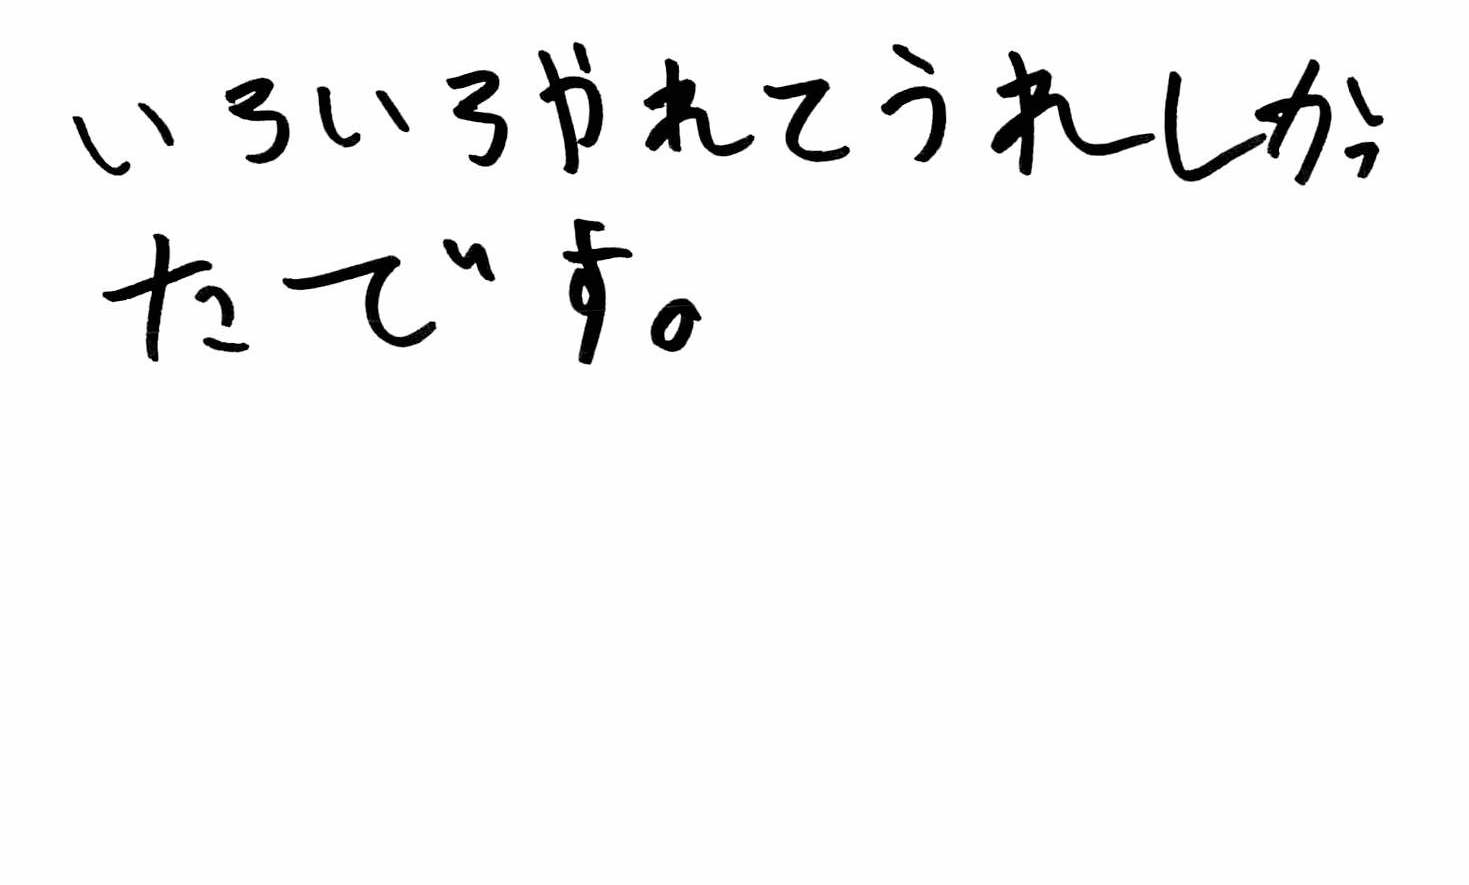 いろいろやれてうれしかっ
たです。